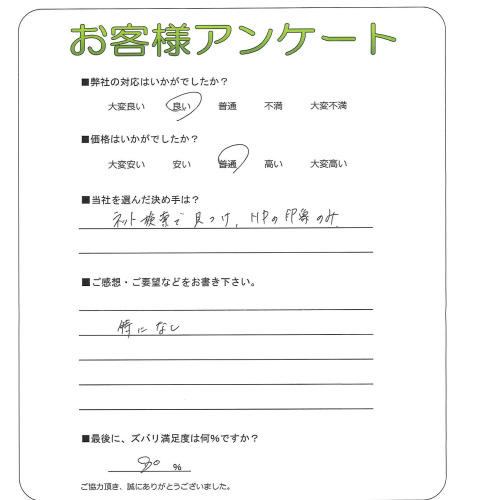 お客様アンケート
■弊社の対応はいかがでしたか？
大変良い 良い 普通 不満 大変不満
■価格はいかがでしたか？
大変安い 安い 普通 高い 大変高い
■当社を選んだ決め手は？
ネット検索で見つけ、HPの印象のみ
■ご感想・ご要望などをお書き下さい。
特になし
■最後に、ズバリ満足度は何％ですか？
80 ％
ご協力頂き、誠にありがとうございました。